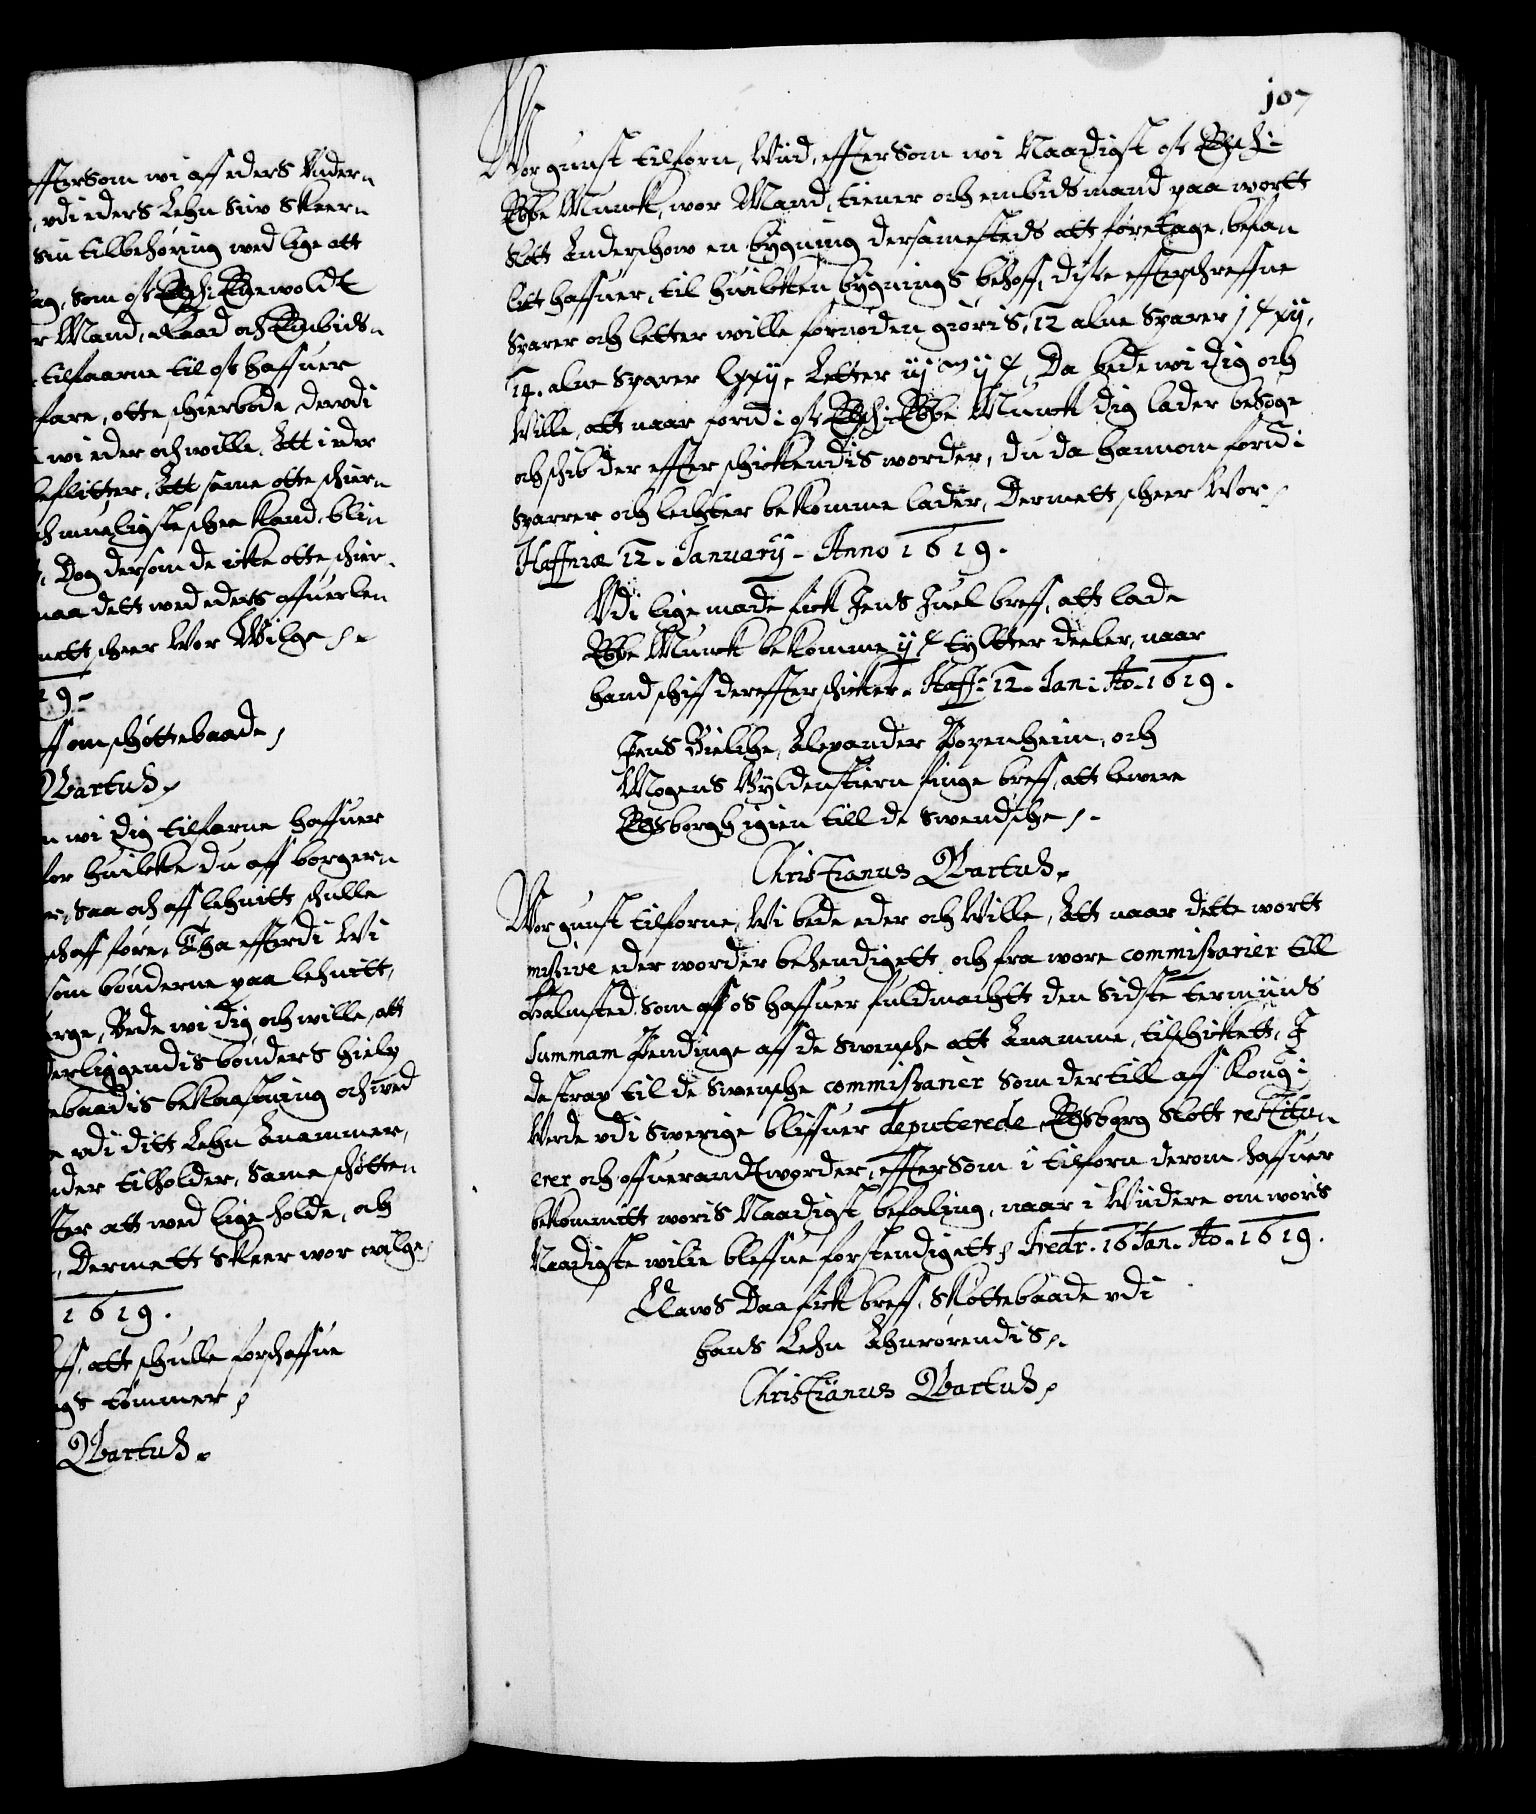 effterSom wi aff eders Under¬
, udi eders Lehn Siuv Skeer¬
Sin tilbehøring wed lige att
lag, som os Elschl: Enewoldt
r Mand, Raad och Embids¬
tilfaarne til os haffuer
fare, otte schierbode, derudi
wi eder och wille, Att i eder
beflitter, Att same otte schier¬
ch mueligste schee kand, bli¬
, Dog dersom de icke otte schier¬
maa dett wed eders offuerlen
mett scheer Wor Wilge
19.
ff om schøttebaade
Qvartus.
n wi dig tilfarne haffuer
for huilcke du aff borger¬
er, saa och aff lehnitt schulle
schaff føre, Tha efftterdi Wi
som bønderne paa lehnitt,
erge, Bede wi dig och wille, att
derliggendis bønders hielp
ebaadis bekaastning och wed
n udi ditt Lehn Anammer,
nder tilholder, Same schøtte¬
ter att wed lige holde, och
, Dermett Skeer wor wilge
1619.
ff, att schulle forschaffue
gs tømmer
Qvartus.
107
Wor gunst tilforn, Wiid, effterSom wi Naadigst os Elschl:
Ebbe Munck, wor Mand, tiener och embidsmand paa wortt
Slott Anderschow en bygning dersamesteds att foretage, befa¬
lett haffuer, til huilcken bygnings behoff, disse effterschreffne
Sparer och letter wille fornøden giøris, 12 alne Sparer j ℔ xij,
14. alne Sparer lxxij, Letter iij m ij ℔, Da bede wi dig och
Wille, att naar forn:di os Elschl: Ebbe Munck dig lader besøge
och schib der effter schickendis worder, du da hannom forn:di
Sparrer och lechter bekomme lader, Dermett scheer Wor
Haffniæ 12. Januarij. Anno 1619.
Udi lige made fick Jens Juel breff, att lade
Ebbe Munck bekomme ij ℔ tyltter deeler, naar
hand schiff dereffter schicker. Haff: 12. Jan: Ao. 1619.
Jens Bielche, Alexander Papenheim, och
Mogens Gyldenstiern finge breff, att lewere
Elsborgh igien till de Swendsche.
Christianus Qvartus.
Wor gunst tilforne, Wi bede eder och Wille, Att naar dette wortt
missive eder worder behendigett, och fra wore commissarier till
Halmsted, som aff os haffuer fuldmachtt den Sidste termiins
Summam Pendinge aff de Swensche att Anamme, tilschickett, I
da strax til de Swensche commissarier som dertill aff Kong:
Werde udi Swerige bliffuer deputerede, Elsborg Slott restitu¬
erer och offuerandtworder, effterSom i tilforn derom haffuer
bekommitt woris Naadigst befaling, naar i Wiidere om woris
Naadigste wilie bleffue forstendigett, Fredr. 16 Jan. Ao. 1619.
Claws Daa fick breff, Skøttebaade udi
hans Lehn Ahnrørendis.
Christianus Qvartus.